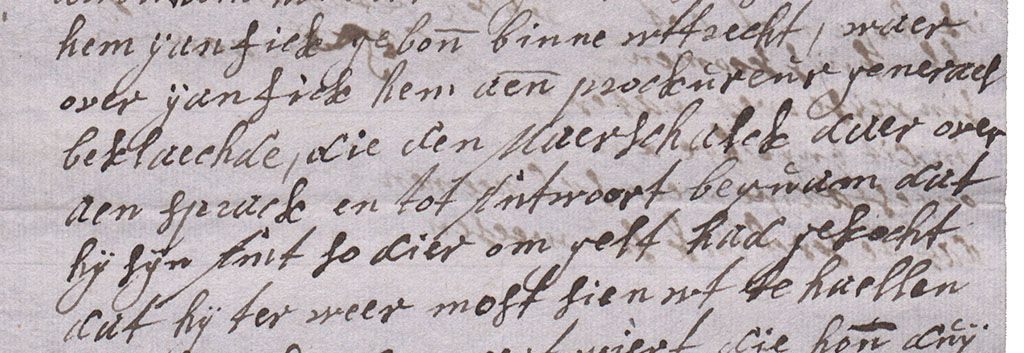 hem yan fick gebon̄ binne wttrecht, waer
over ÿan fick hem aen̄ prockureur generael
beklaechde, die den Maerschalck daer over
aen sprack en tot Antwoort bequam dat
hÿ sÿn Amt so dier om gelt had gekocht
dat hÿ ter weer most sien wt te haellen
die hon̄